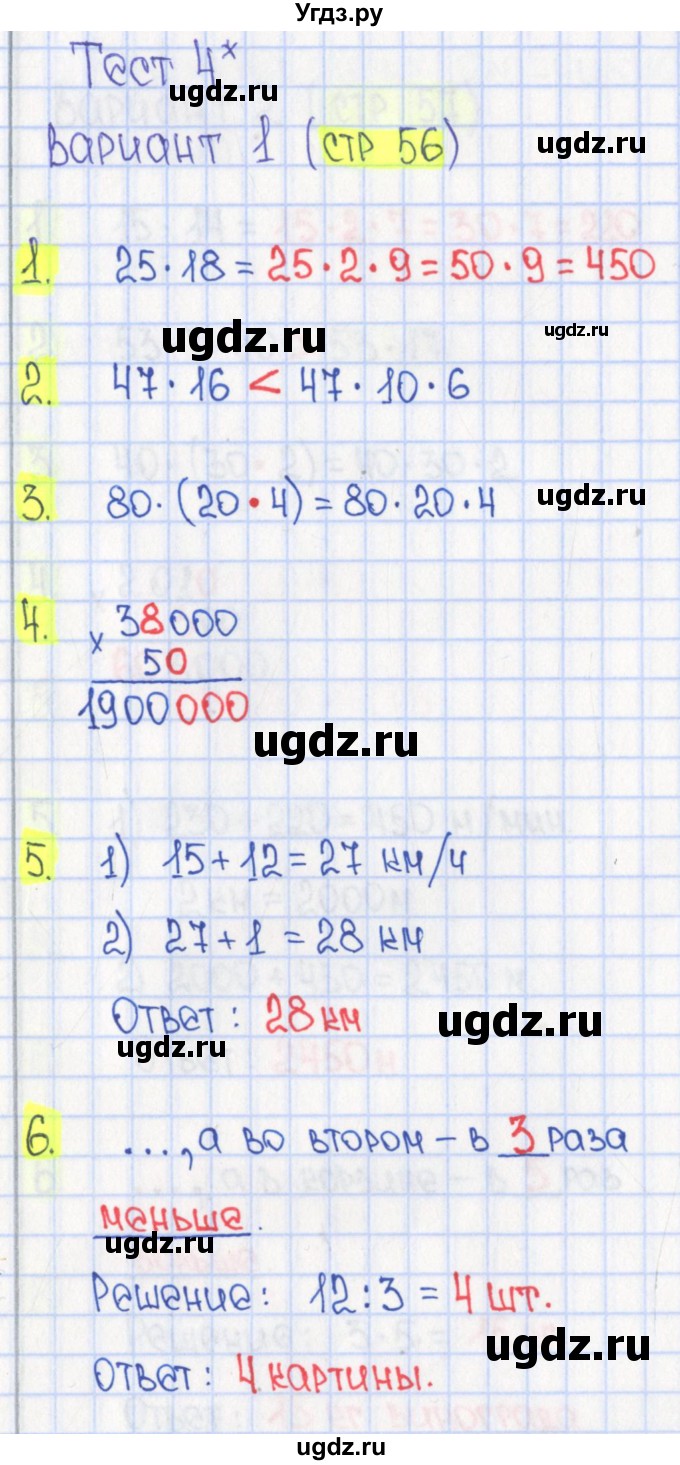 Угдз.ру
Тест 4*
ugdz.ru
Вариант 1 (стр 56)
ugdz.ru
1. 25·18 = 25·2·9 = 50·9 = 450
ugdz.ru
ugdz.ru
2. 47·16 < 47·10·6
3. 80·(20·4) = 80·20·4
ugdz.ru
4. × 38000
50
1900000
ugdz.ru
5. 1) 15+12=27 км/ч
2) 27+1=28 км
Ответ: 28 км
ugdz.ru
ugdz.ru
6. ..., а во втором – в 3 раза
меньше.
ugdz.ru
Решение: 12:3 = 4 шт.
ugdz.ru
Ответ: 4 картины.
ugdz.ru